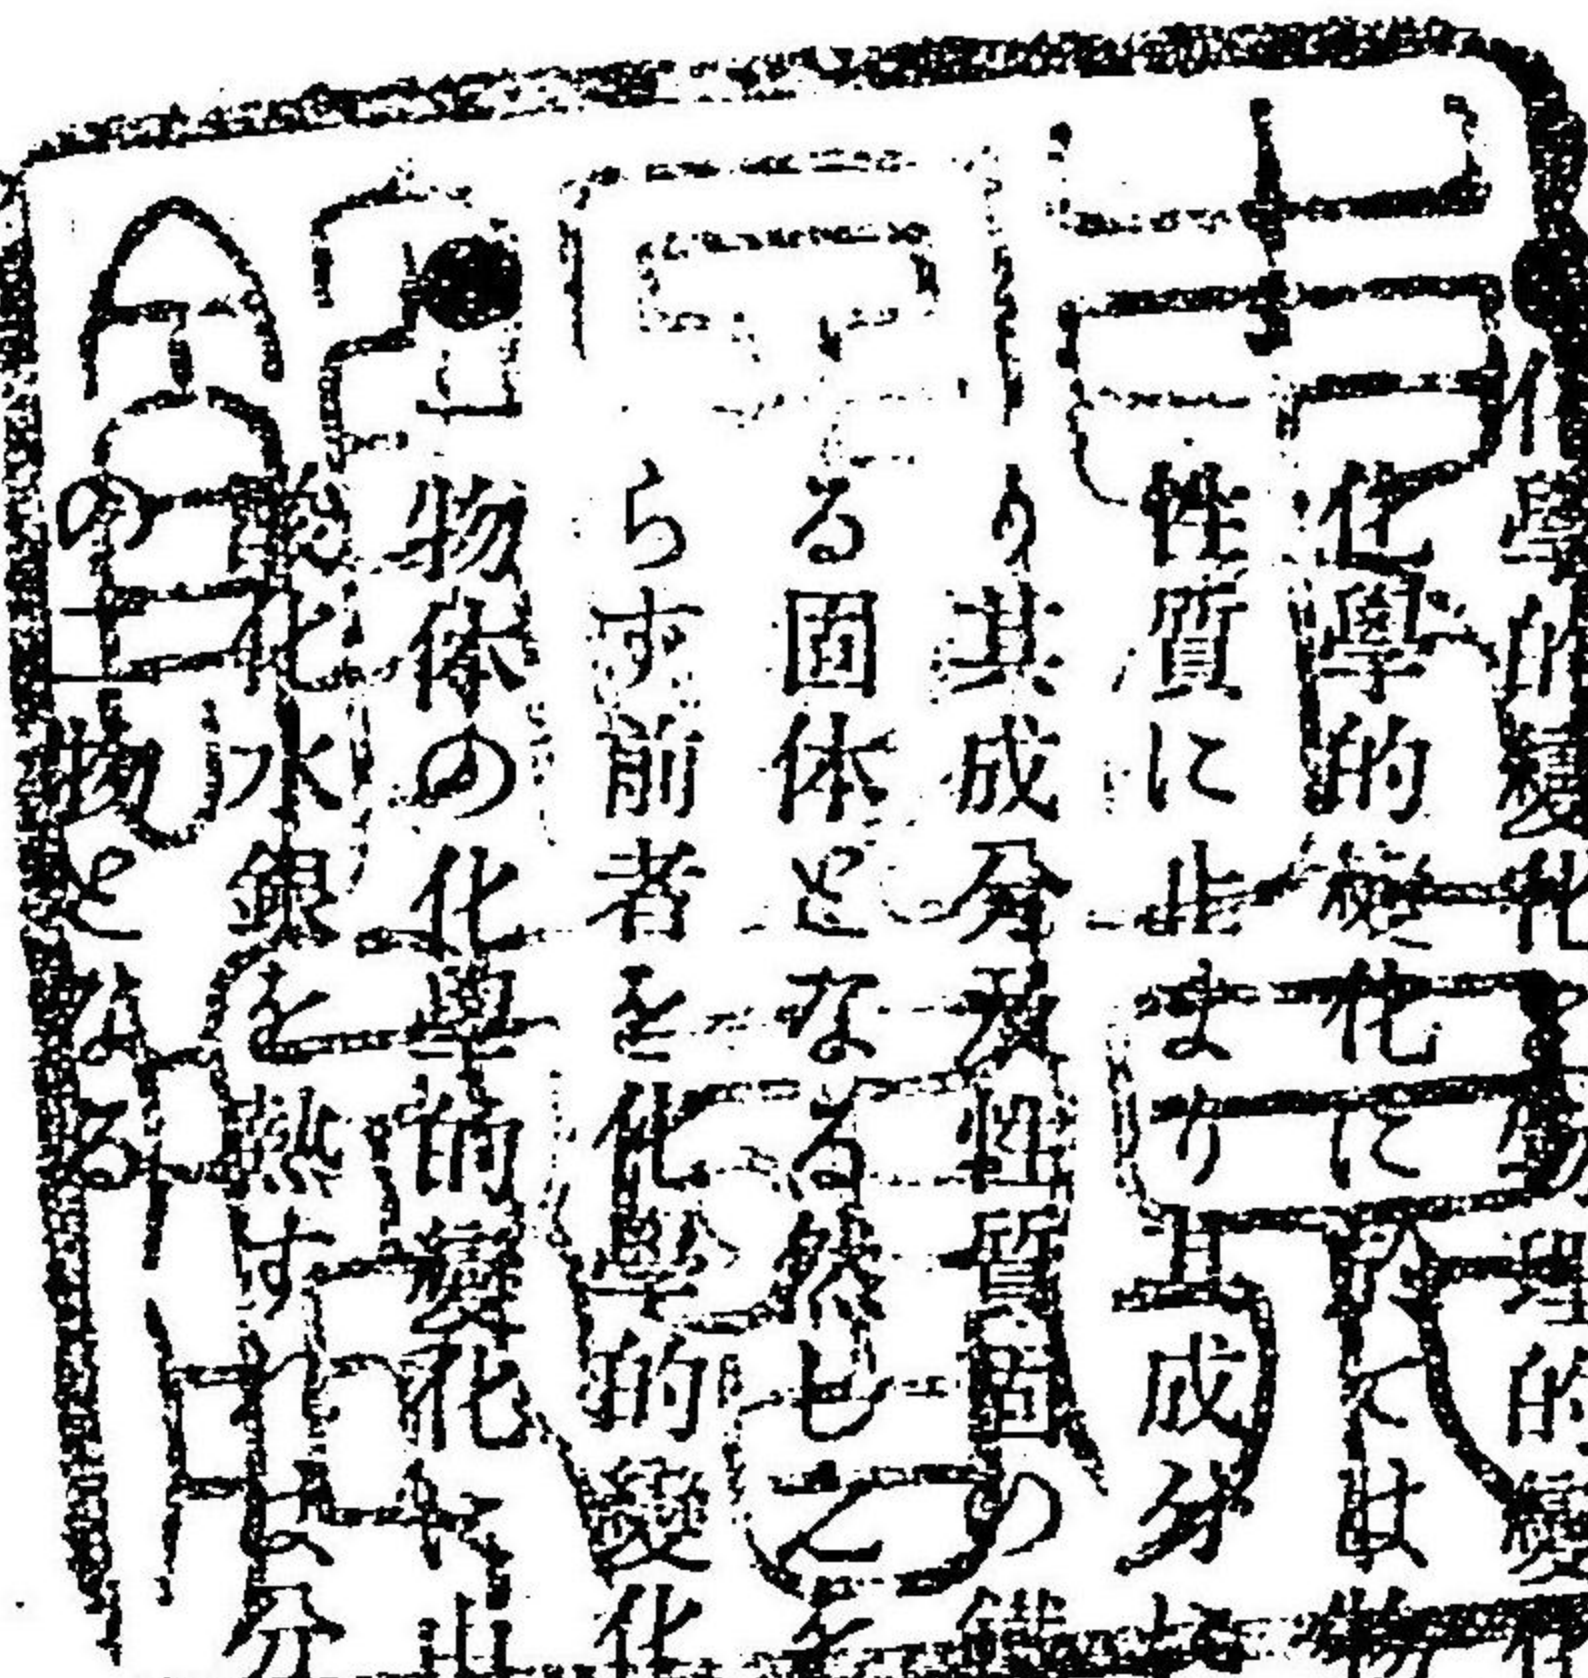 化學的變化 物理的變
化學的變化に於ては物
性質に止まり其成分は
り其成分及性質固の鐵
る固体となる然も之を
らす前者を化學的變化
物体の化學的變化に由
酸化水銀を熱すれは分
の二物となる